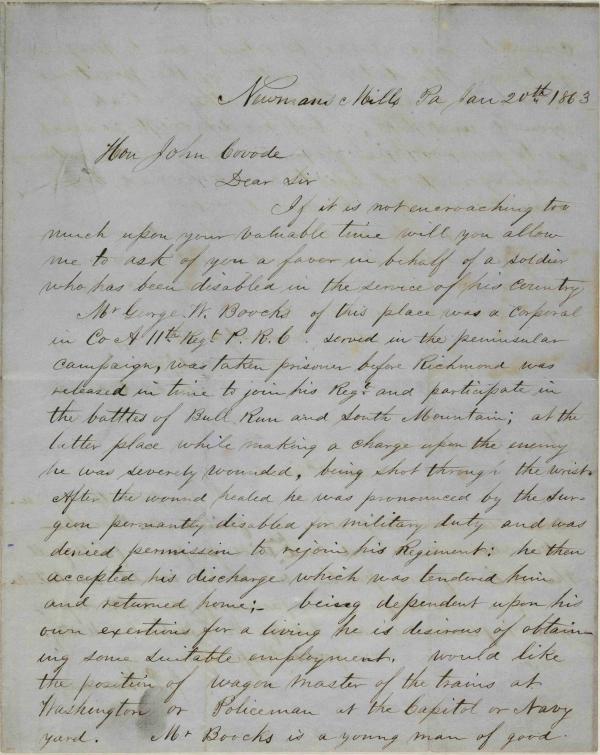 Newmans Mills Pa Jan 20th 1863
Hon John Covode
Dear Sir
If it is not encroaching too
much upon your valuable time will you allow
me to ask of you a favor in behalf of a soldier
who has been disabled in the service of his country
Mr George W. Boocks of this place was a corporal
in Co A 11th Regt P. R. C. served in the peninsular
campaign, was taken prisoner before Richmond was
released in time to join his Regt and participate in
the battles of Bull Run and South Mountain; at the
latter place while making a charge upon the enemy
he was severely wounded, being shot through the wrist.
After the wound healed he was pronounced by the Sur-
geon permantly disabled for military duty and was
denied permission to rejoin his Regiment: he then
accepted his discharge which was tendered him
and returned home;- being dependent upon his
own exertions for a living he is desirous of obtain-
ing some suitable employment. would like
the position of wagon master of the trains at
Washington or Policeman at the Capitol or Navy
yard. Mr Boocks is a young man of good